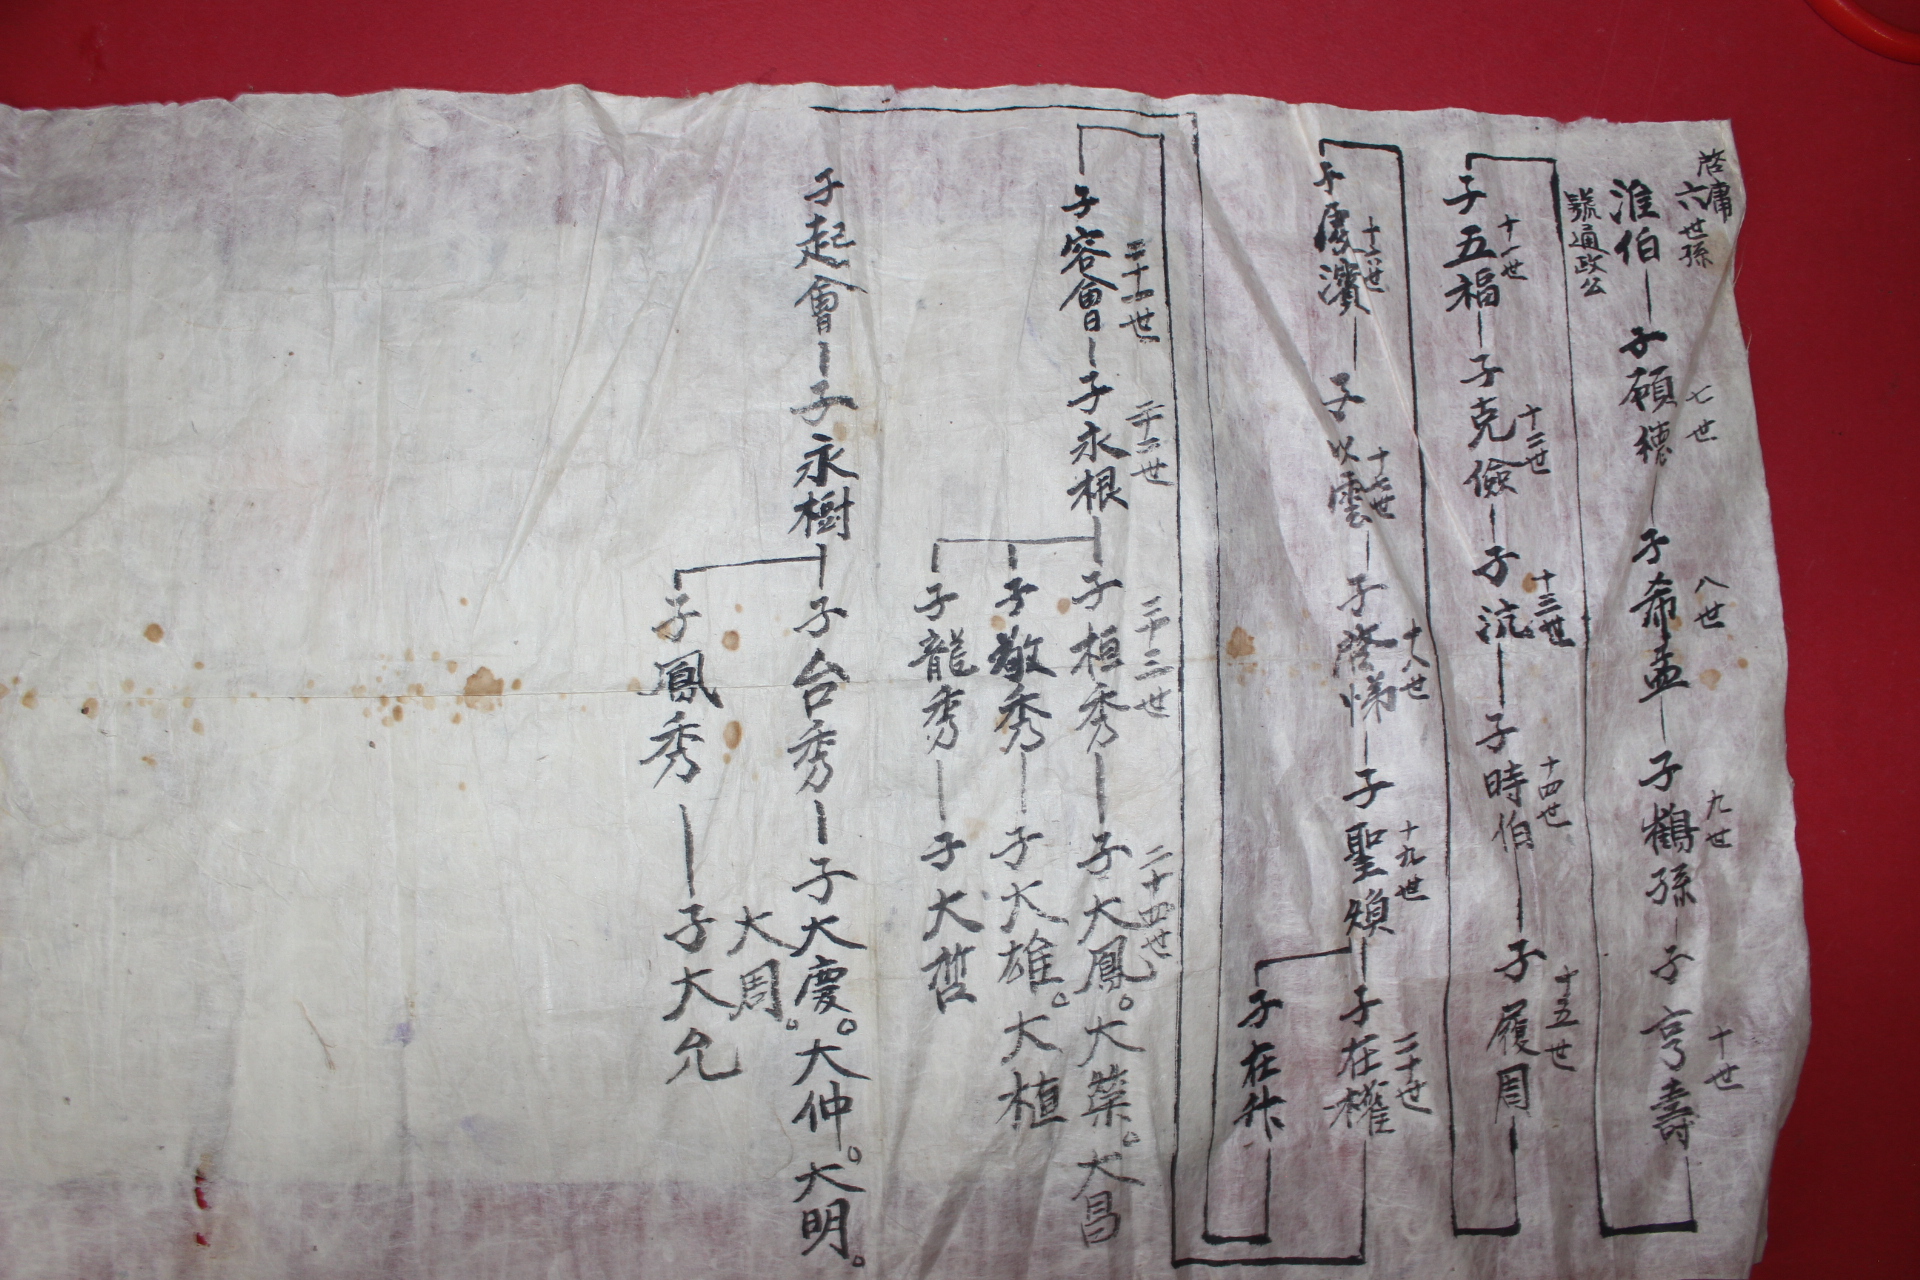 啓庸
六世孫
淮伯
號通政公
子願德 七世
子希孟 八世
子鶴孫 九世
子亨壽 十世
子五福 十一世
子克儉 十二世
子沆 十三世
子時伯 十四世
子履周 十五世
子慶濱 十六世
子以雲 十七世
子啓悌 十八世
子聖煥 十九世
子在權 二十世
子在作
子容會 二十一世
子永根 二十二世
子桓秀 二十三世
子大鳳。大葉。大昌 二十四世
子敬秀
子大雄。大植
子龍秀
子大哲
子起會
子永樹
子台秀
子大慶。大仲。大明。
大周。
子鳳秀
子大允